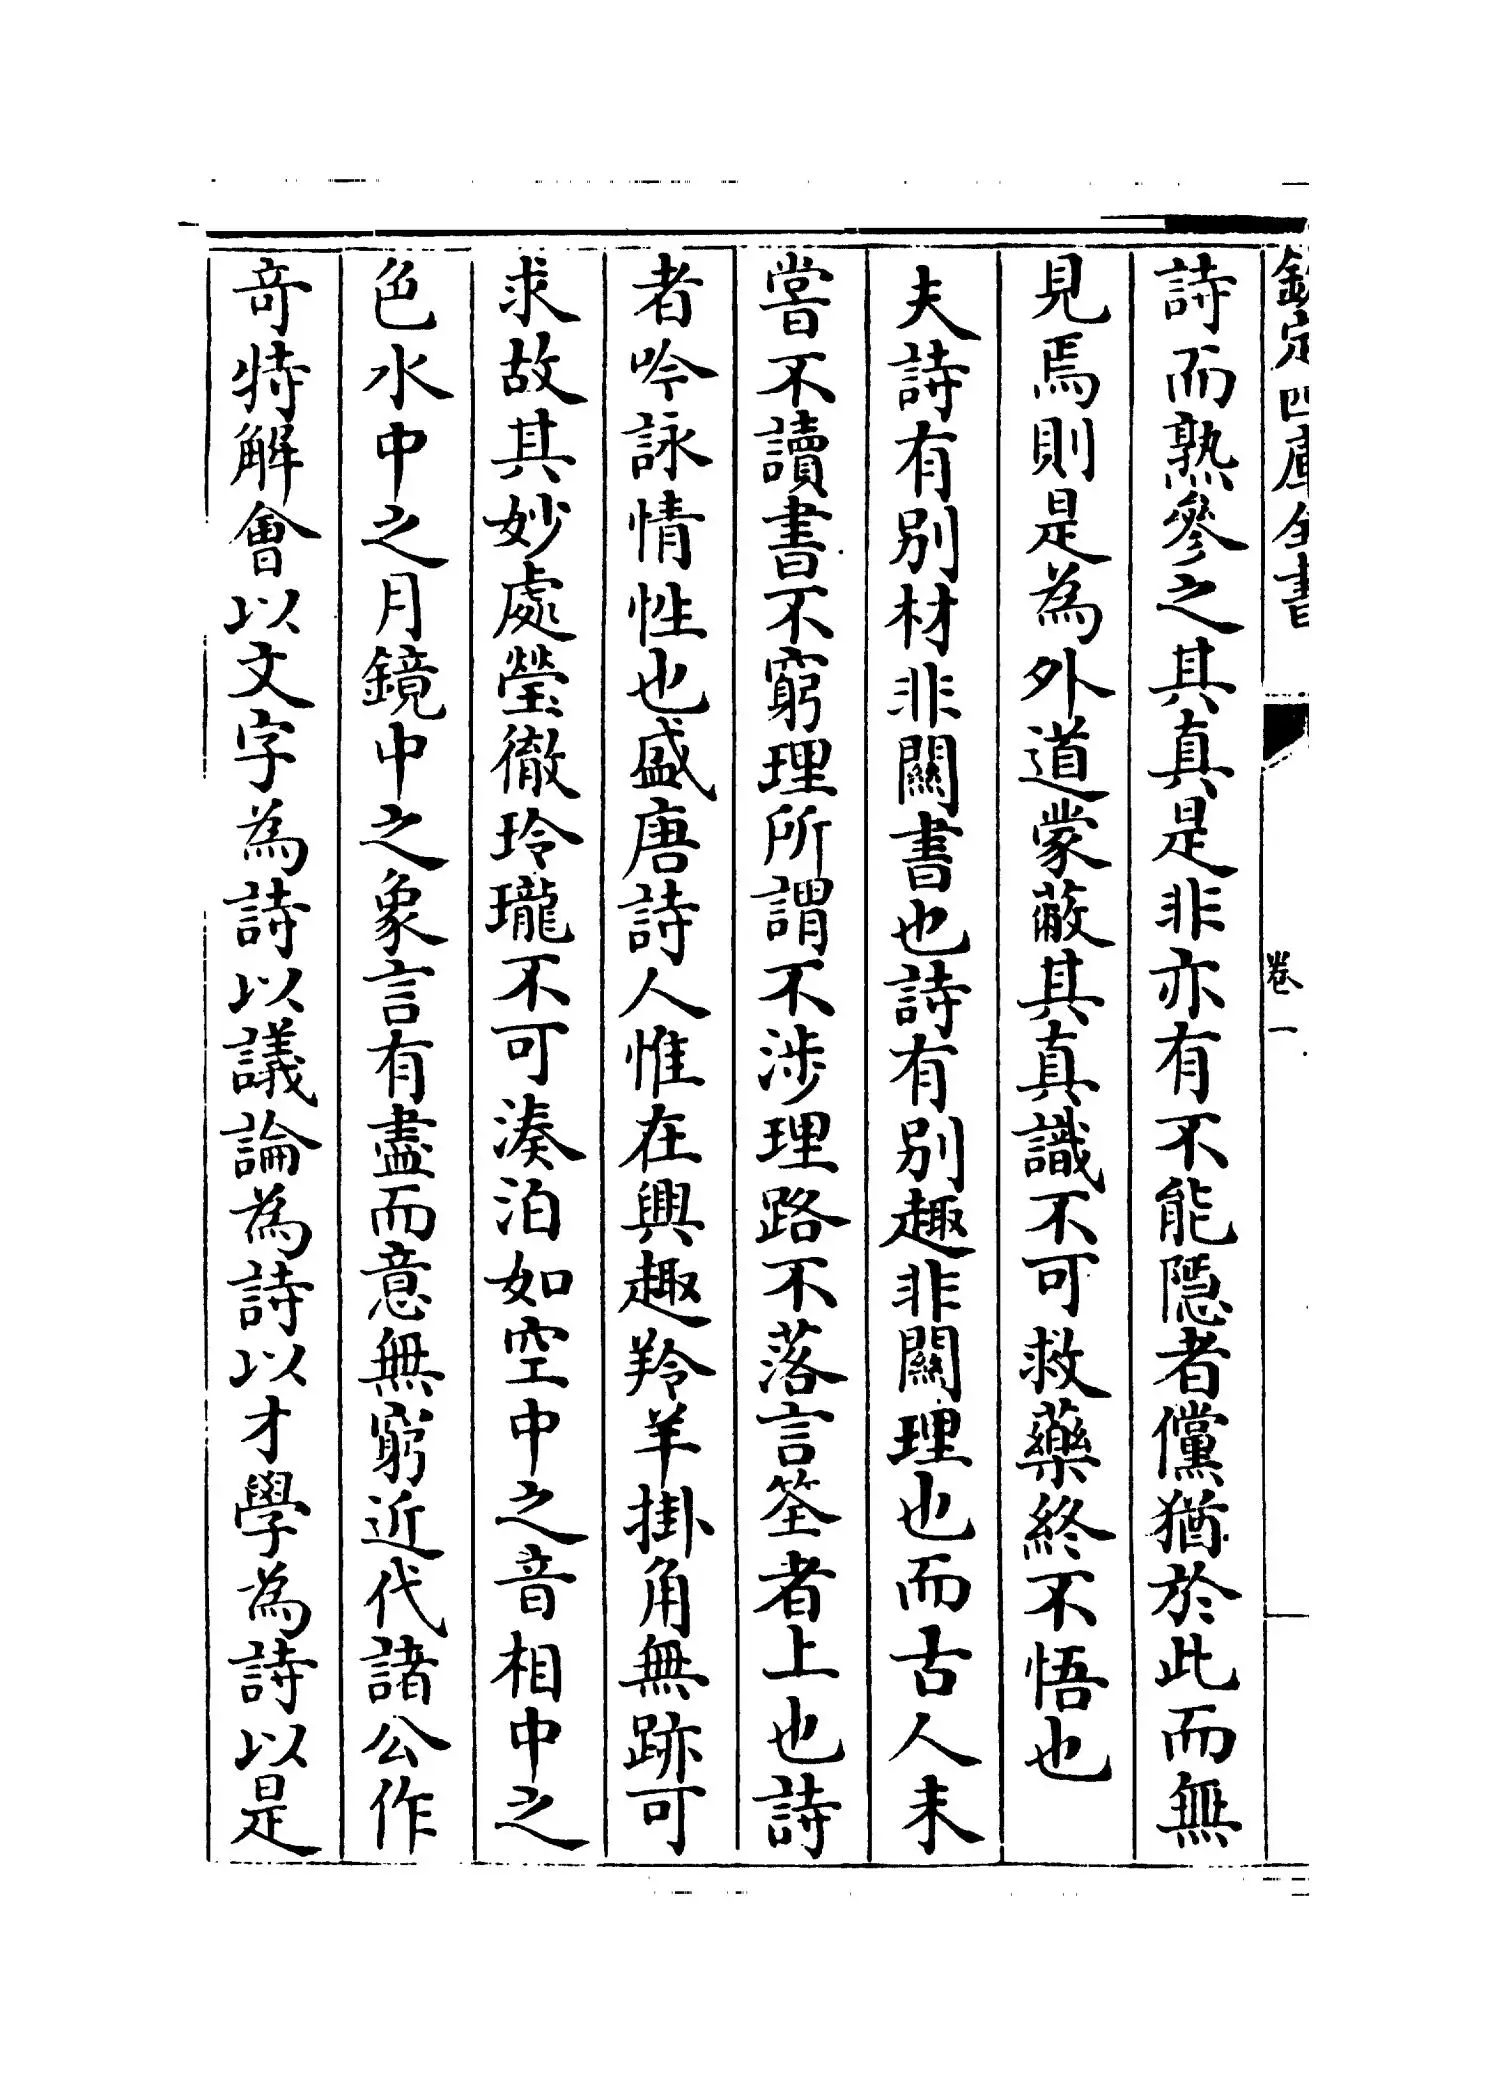 欽定四庫全書
卷一
詩而熟參之其真是非亦有不能隱者儻猶於此而無
見焉則是為外道蒙蔽其真識不可救藥終不悟也
夫詩有别材非關書也詩有别趣非關理也而古人未
嘗不讀書不窮理所謂不涉理路不落言筌者上也詩
者吟詠情性也盛唐詩人惟在興趣羚羊掛角無跡可
求故其妙處瑩徹玲瓏不可湊泊如空中之音相中之
色水中之月鏡中之象言有盡而意無窮近代諸公作
奇特解㑹以文字為詩以議論為詩以才學為詩以是